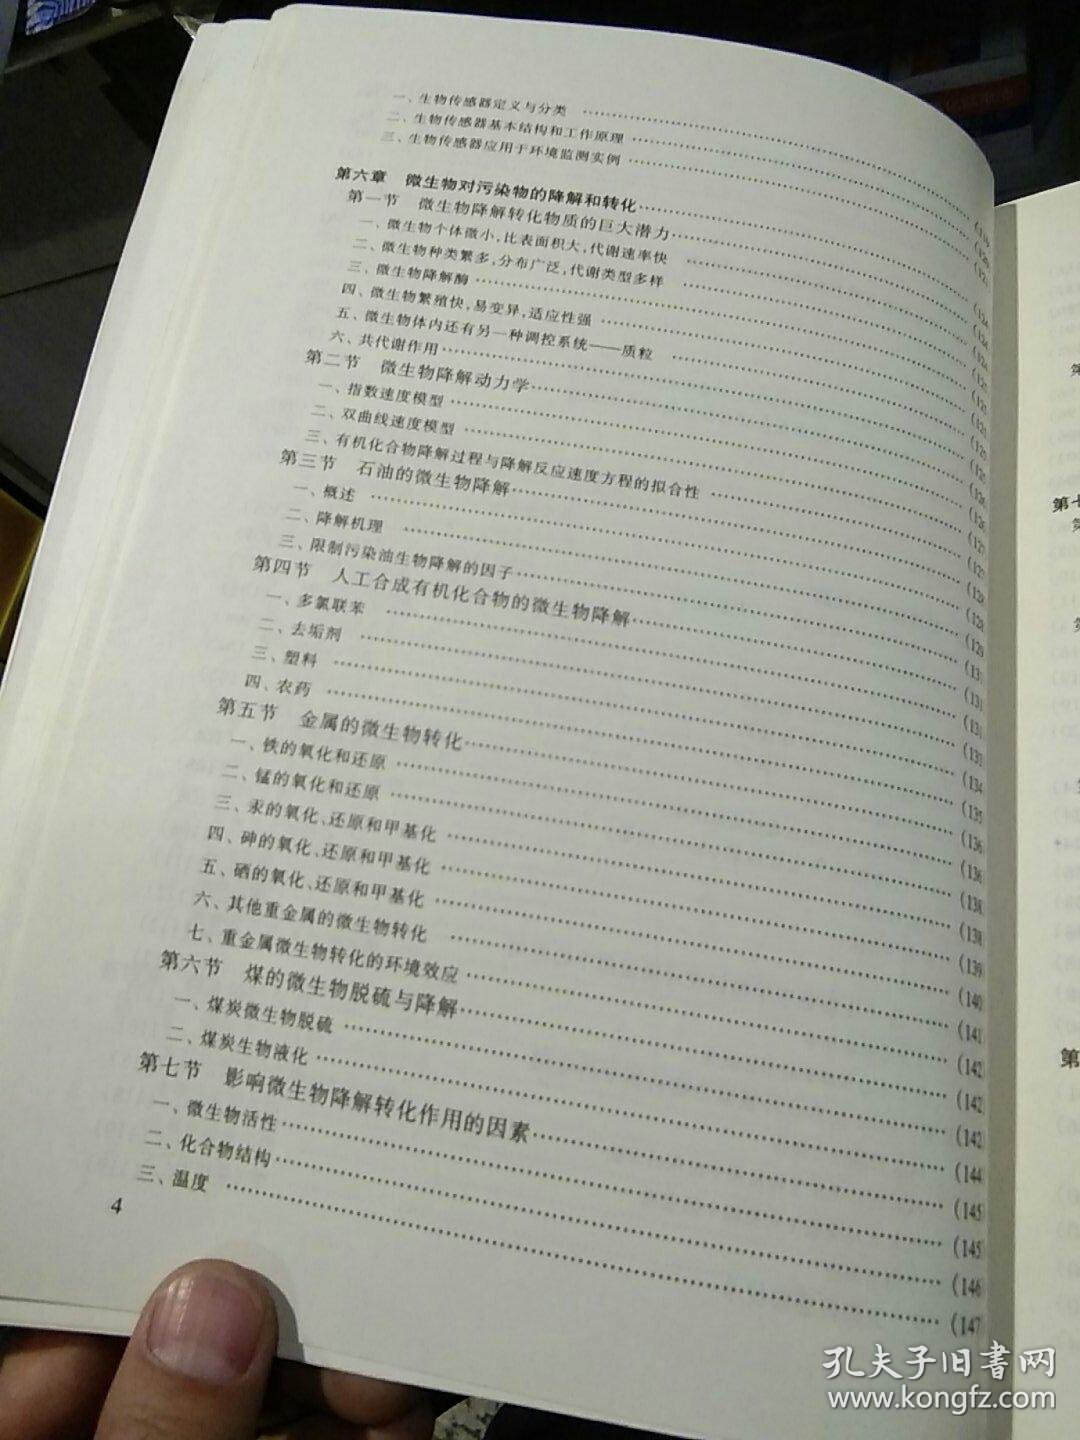 一、生物传感器定义与分类
二、生物传感器基本结构和工作原理
三、生物传感器应用于环境监测实例
第六章 微生物对污染物的降解和转化
第一节 微生物降解转化物质的巨大潜力
一、微生物个体微小,比表面积大,代谢速率快
二、微生物种类繁多,分布广泛,代谢类型多样
三、微生物降解酶
四、微生物繁殖快,易变异,适应性强
五、微生物体内还有另一种调控系统——质粒
六、共代谢作用
第二节 微生物降解动力学
一、指数速度模型
二、双曲线速度模型
三、有机化合物降解过程与降解反应速度方程的拟合性
第三节 石油的微生物降解
一、概述
二、降解机理
三、限制污染油生物降解的因子
第四节 人工合成有机化合物的微生物降解
一、多氯联苯
二、去垢剂
三、塑料
四、农药
第五节 金属的微生物转化
一、铁的氧化和还原
二、锰的氧化和还原
三、汞的氧化、还原和甲基化
四、砷的氧化、还原和甲基化
五、硒的氧化、还原和甲基化
六、其他重金属的微生物转化
七、重金属微生物转化的环境效应
第六节 煤的微生物脱硫与降解
一、煤炭微生物脱硫
二、煤炭生物液化
第七节 影响微生物降解转化作用的因素 (144
一、微生物活性 (145
二、化合物结构 (146
三、温度 (147
4
孔夫子旧书网
www.kongfz.com